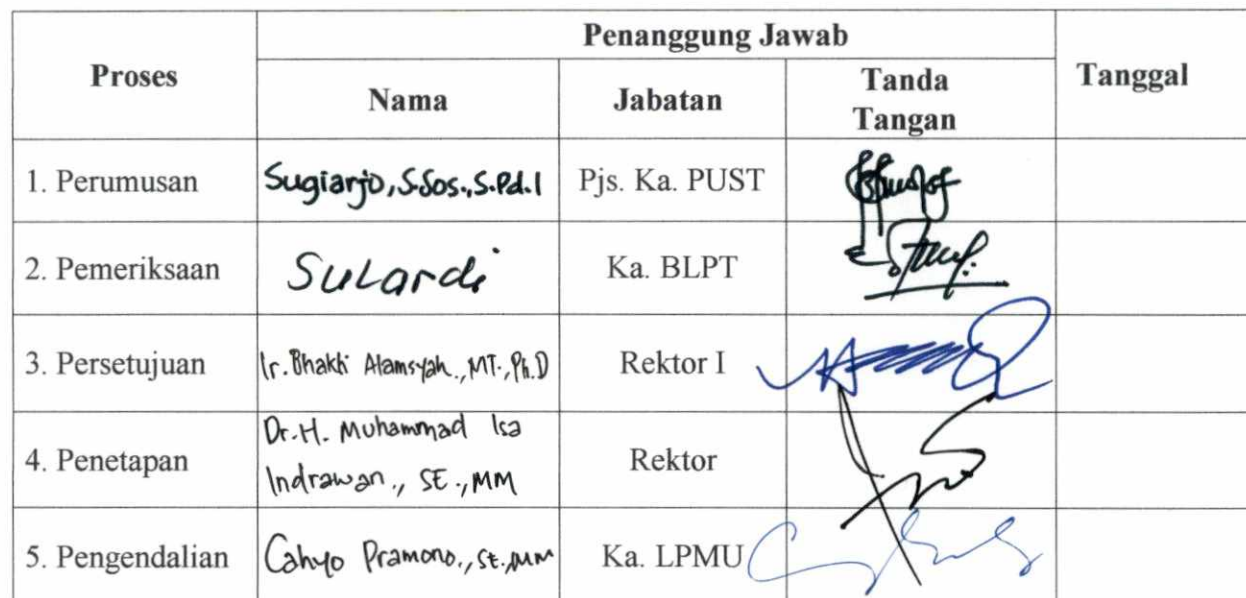 Proses
Penanggung Jawab
Tanggal
Nama
Jabatan
Tanda
Tangan
1. Perumusan
Sugiarjo, S.Sos., S.Pd.I
Pjs. Ka. PUST
2. Pemeriksaan
Sulardi
Ka. BLPT
3. Persetujuan
Ir. Bhakti Alamsyah., MT., Ph.D
Rektor I
4. Penetapan
Dr. H. Muhammad Isa
Indrawan., SE., MM
Rektor
5. Pengendalian
Cahyo Pramono., SE., MM
Ka. LPMU